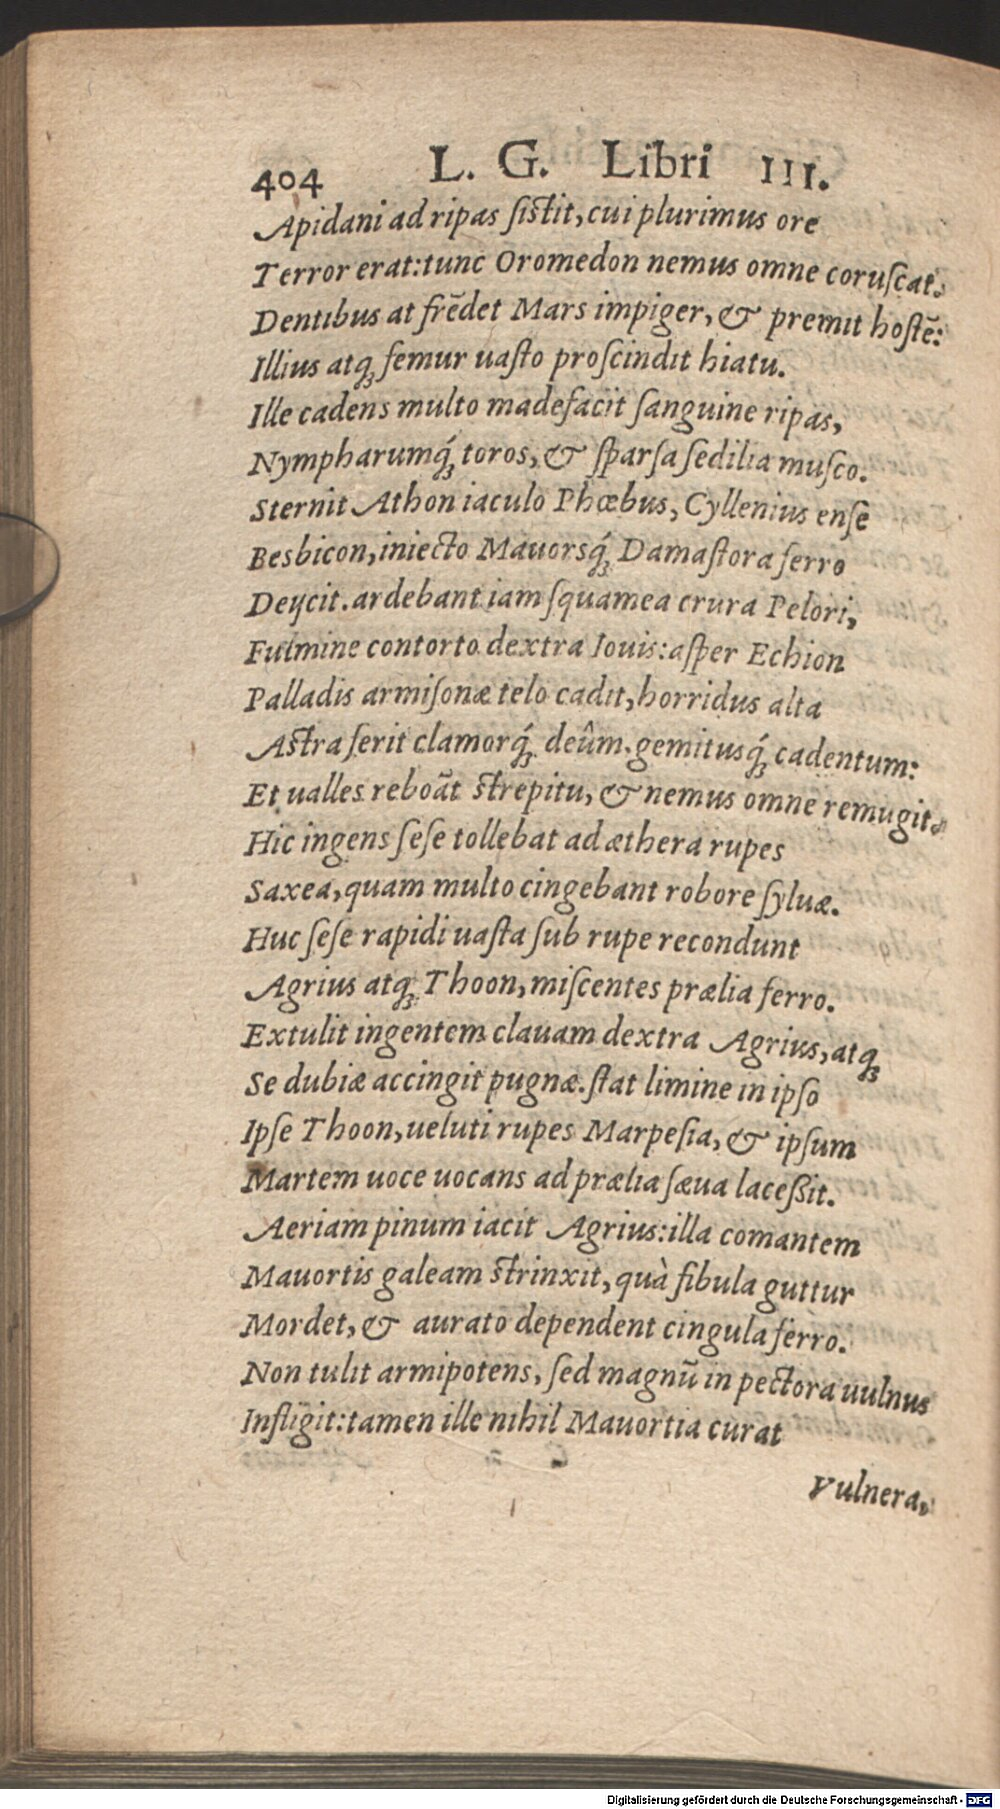 404 L. G. Libri III.
Apidani ad ripas ſiſtit, cui plurimus ore
Terror erat: tunc Oromedon nemus omne coruſcat.
Dentibus at frẽdet Mars impiger, & premit hoſtẽ:
Illius atq; femur uaſto proſcindit hiatu.
Ille cadens multo madefacit ſanguine ripas,
Nympharumq́; toros, & ſparſa ſedilia muſco.
Sternit Athon iaculo Phœbus, Cyllenius enſe
Besbicon, iniecto Mauorsq́; Damaſtora ferro
Deijcit. ardebant iam ſquamea crura Pelori,
Fulmine contorto dextra Iouis: aſper Echion
Palladis armiſonæ telo cadit, horridus alta
Aſtra ferit clamorq́; deûm. gemitusq́; cadentum:
Et ualles reboãt ſtrepitu, & nemus omne remugit.
Hic ingens ſeſe tollebat ad æthera rupes
Saxea, quam multo cingebant robore ſyluæ.
Huc ſeſe rapidi uaſta ſub rupe recondunt
Agrius atq; Thoon, miſcentes prælia ferro.
Extulit ingentem clauam dextra Agrius, atq;
Se dubiæ accingit pugnæ. ſtat limine in ipſo
Ipſe Thoon, ueluti rupes Marpeſia, & ipſum
Martem uoce uocans ad prælia ſæua laceßit.
Aeriam pinum iacit Agrius: illa comantem
Mauortis galeam ſtrinxit, quà fibula guttur
Mordet, & aurato dependent cingula ferro.
Non tulit armipotens, ſed magnũ in pectora uulnus
Infligit: tamen ille nihil Mauortia curat
Vulnera,
Digitalisierung gefördert durch die Deutsche Forschungsgemeinschaft - DFG